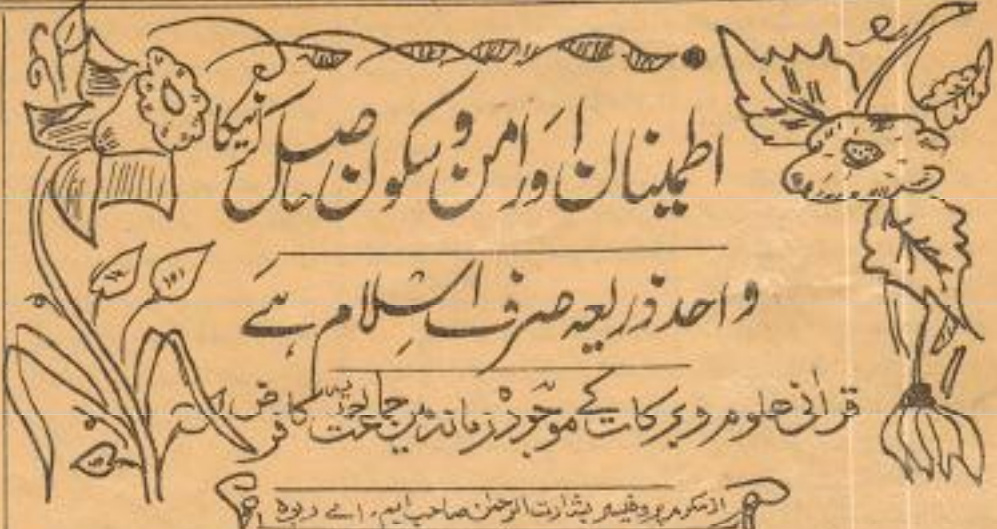 اطمینان اور امن و سکون حاصل کرنیکا
واحد ذریعہ صرف اسلام ہے
قرآنی علوم و برکات کے موجودہ زمانہ میں جماعت احمدیہ کا فرض
از مکرم پروفیسر بشارت الرحمٰن صاحب ایم۔ اے ربوہ